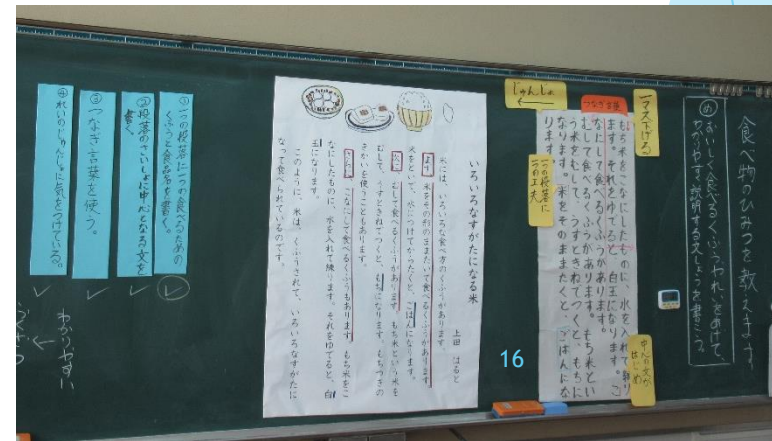 食べ物のひみつを教えます
め おいしく食べるくふうやれいをあげて、
わかりやすく説明する文しょうを書こう。
一マス下げる
つなぎ言葉
じゅんじょ
←
もち米をこなにしたものに、水を入れて練り
ます。それをゆでると、白玉になります。こ
なにして食べるくふうがあります。もち米とい
う米をむして、うすときねでつくと、もちに
なります。米をそのままたくと、ごはんにな
ります。
一つの段落に
一つの工夫
中心の文が
はじめ
16
いろいろなすがたになる米
上田 はると
米には、いろいろな食べ方のくふうがあります。
まず、米をその形のままたいて食べるくふうがあります。
米をといで、水につけてからたくと、ごはんになります。
次に、むして食べるくふうがあります。もち米という米を
むして、うすときねでつくと、もちになります。もちつきの
きかいを使うこともあります。
こなにして食べるくふうもあります。もち米をこ
なにしたものに、水を入れて練ります。それをゆでると、白
玉になります。
このように、米は、くふうされて、いろいろなすがたに
なって食べられているのです。
①一つの段落に一つの食べるための
くふうと食品名を書く。
②段落のさいしょに中心となる文を
書く。
③つなぎ言葉を使う。
④れいのじゅんじょに気をつけている。
わかりやすい